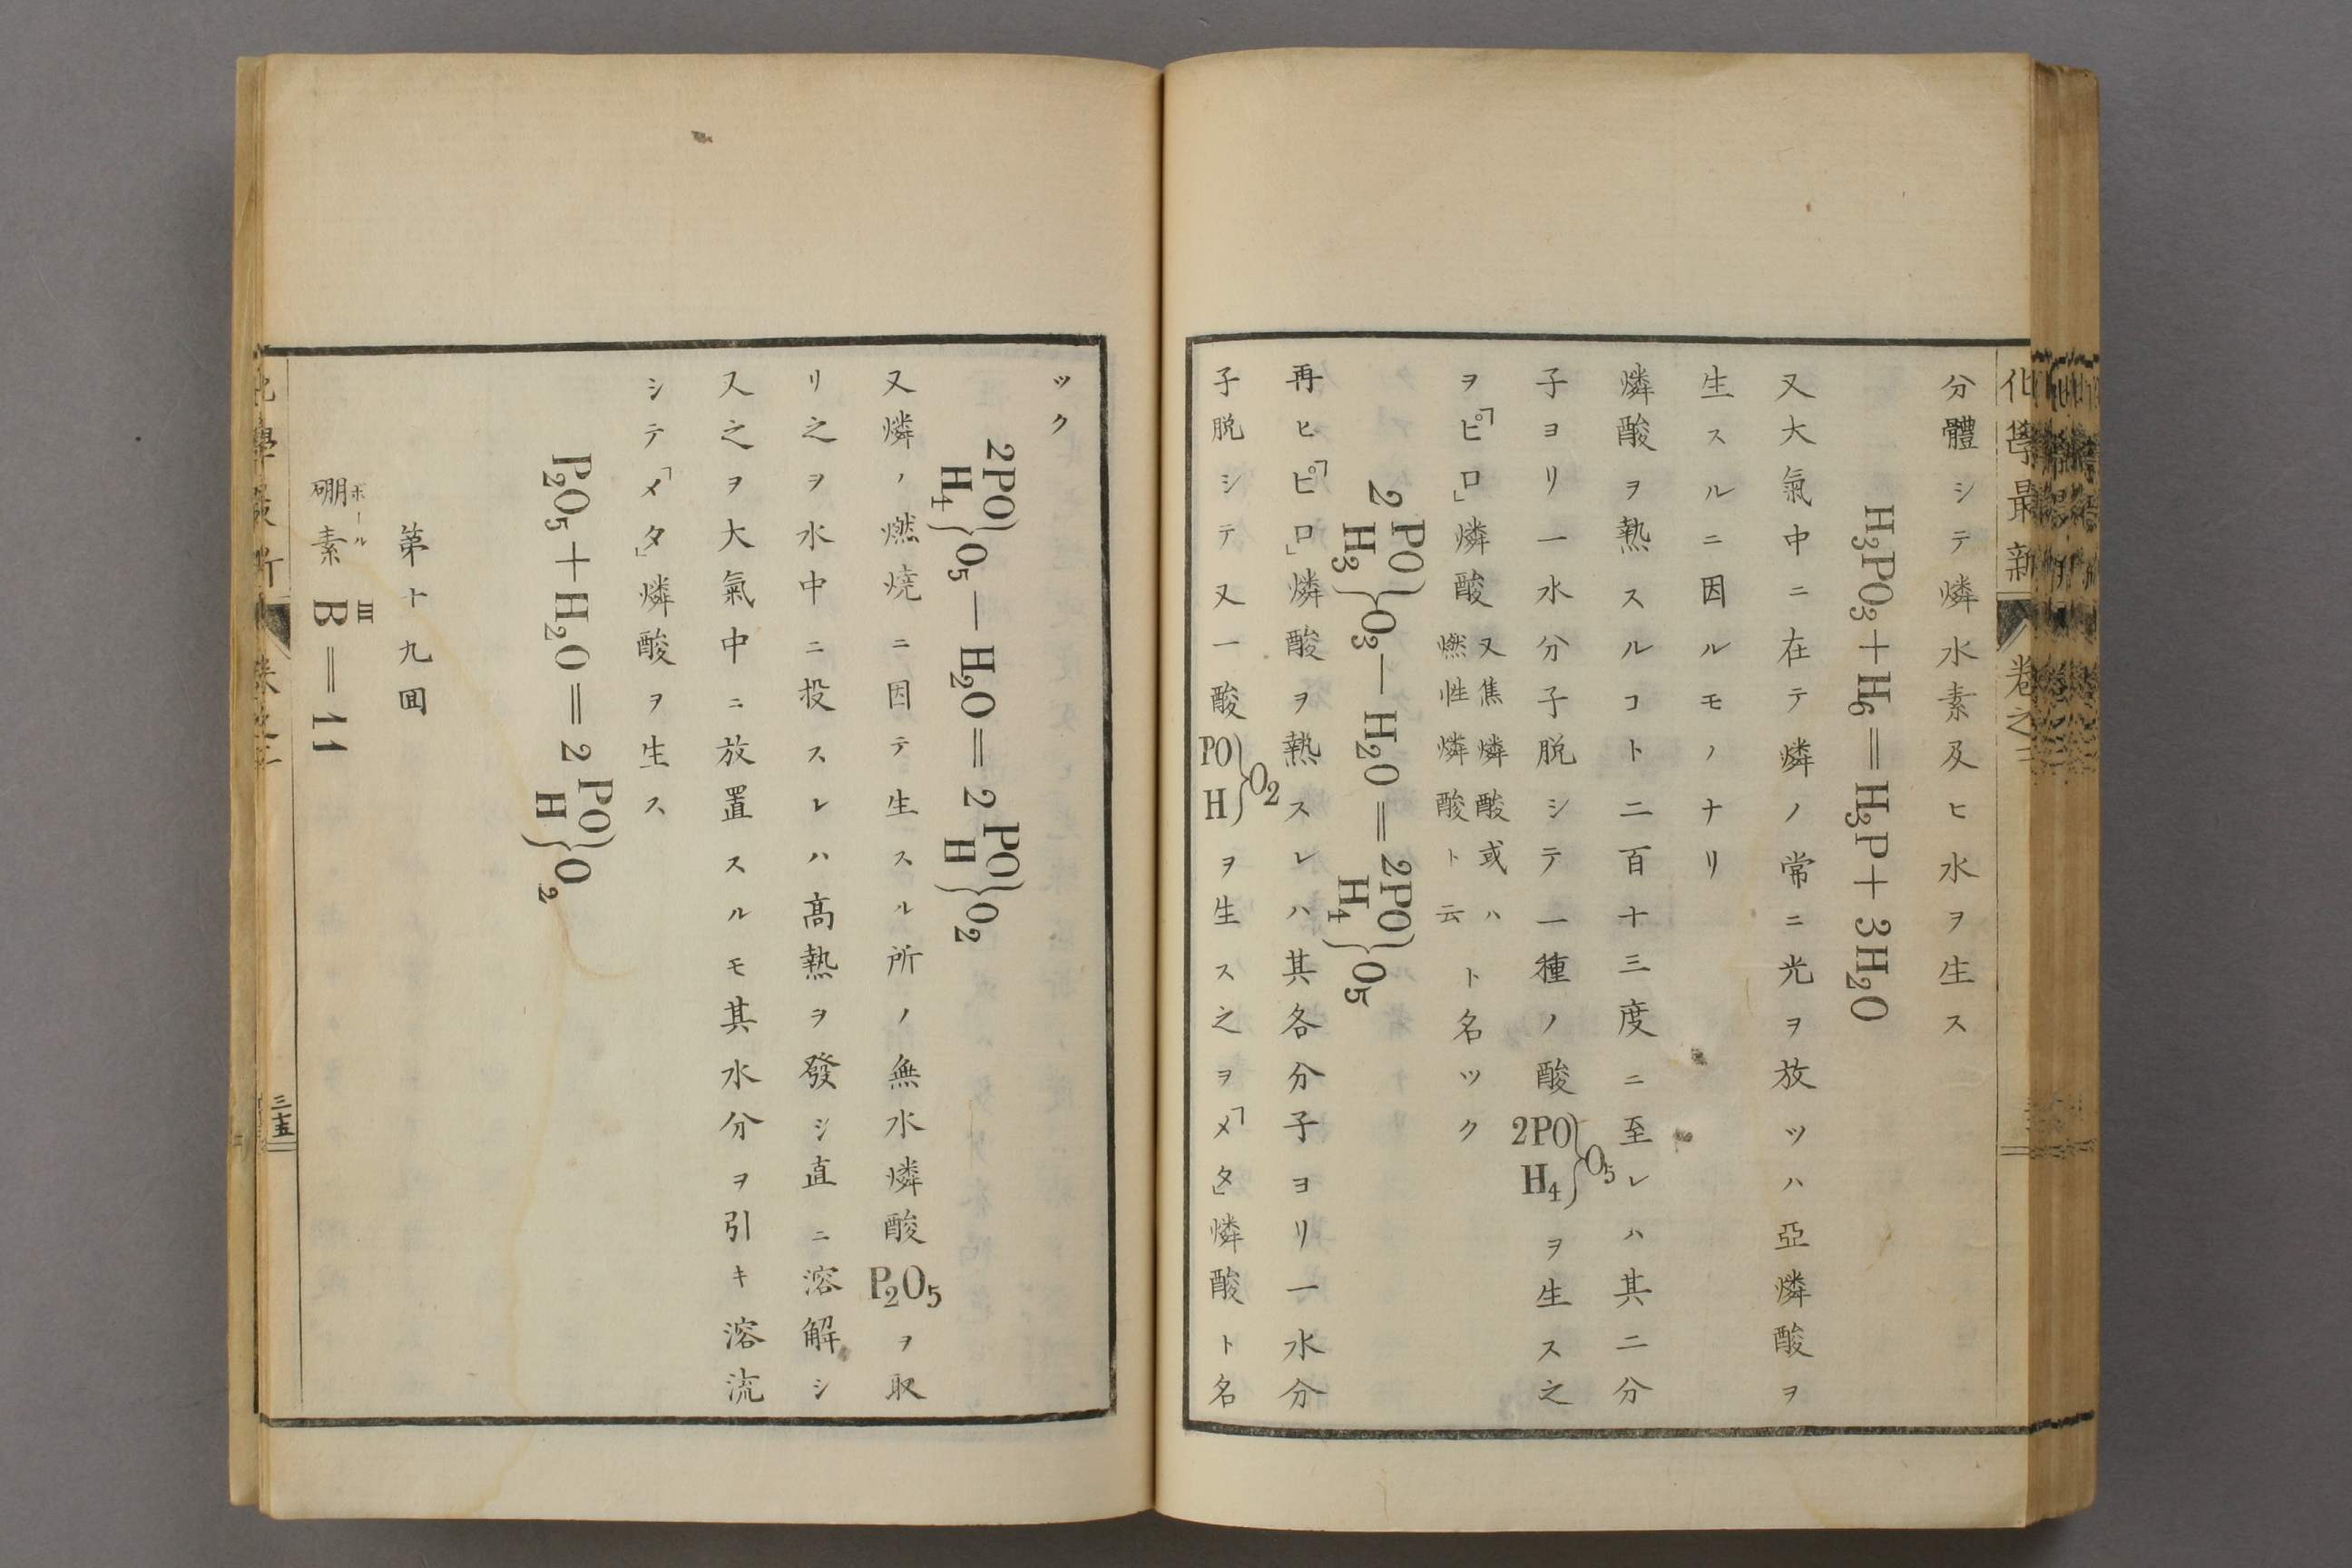 化學最新 卷之二
分體シテ燐水素及ヒ水ヲ生ス
H₃PO₃＋H₆＝H₃P＋3H₂O
又大氣中ニ在テ燐ノ常ニ光ヲ放ツハ亞燐酸ヲ
生スルニ因ルモノナリ
燐酸ヲ熱スルコト二百十三度ニ至レハ其二分
子ヨリ一水分子脱シテ一種ノ酸 2PO H₄}O₅ ヲ生ス之
ヲ「ピロ」燐酸 又焦燐酸或ハ燃性燐酸ト云 ト名ツク
2 PO H₃}O₃—H₂O＝2PO H₄}O₅
再ヒ「ピロ」燐酸ヲ熱スレハ其各分子ヨリ一水分
子脱シテ又一酸 PO H}O₂ ヲ生ス之ヲ「メタ」燐酸ト名
ツク
2PO H₄}O₅—H₂O＝2 PO H}O₂
又燐ノ燃燒ニ因テ生スル所ノ無水燐酸 P₂O₅ ヲ取
リ之ヲ水中ニ投スレハ髙熱ヲ發シ直ニ溶解シ
又之ヲ大氣中ニ放置スルモ其水分ヲ引キ溶流
シテ「メタ」燐酸ヲ生ス
P₂O₅＋H₂O＝2 PO H}O₂
第十九囬
硼素 ボール B III＝11
三十五